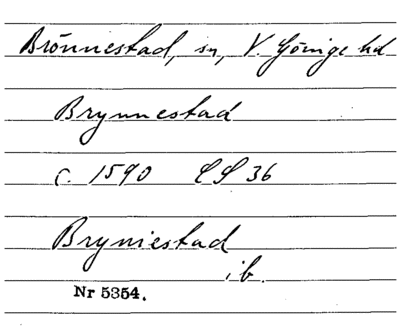 Brönnestad, sn, V. Göinge hd
Brynnestad
c. 1590 LS 36
Bryniestad
ib.
Nr 5354.